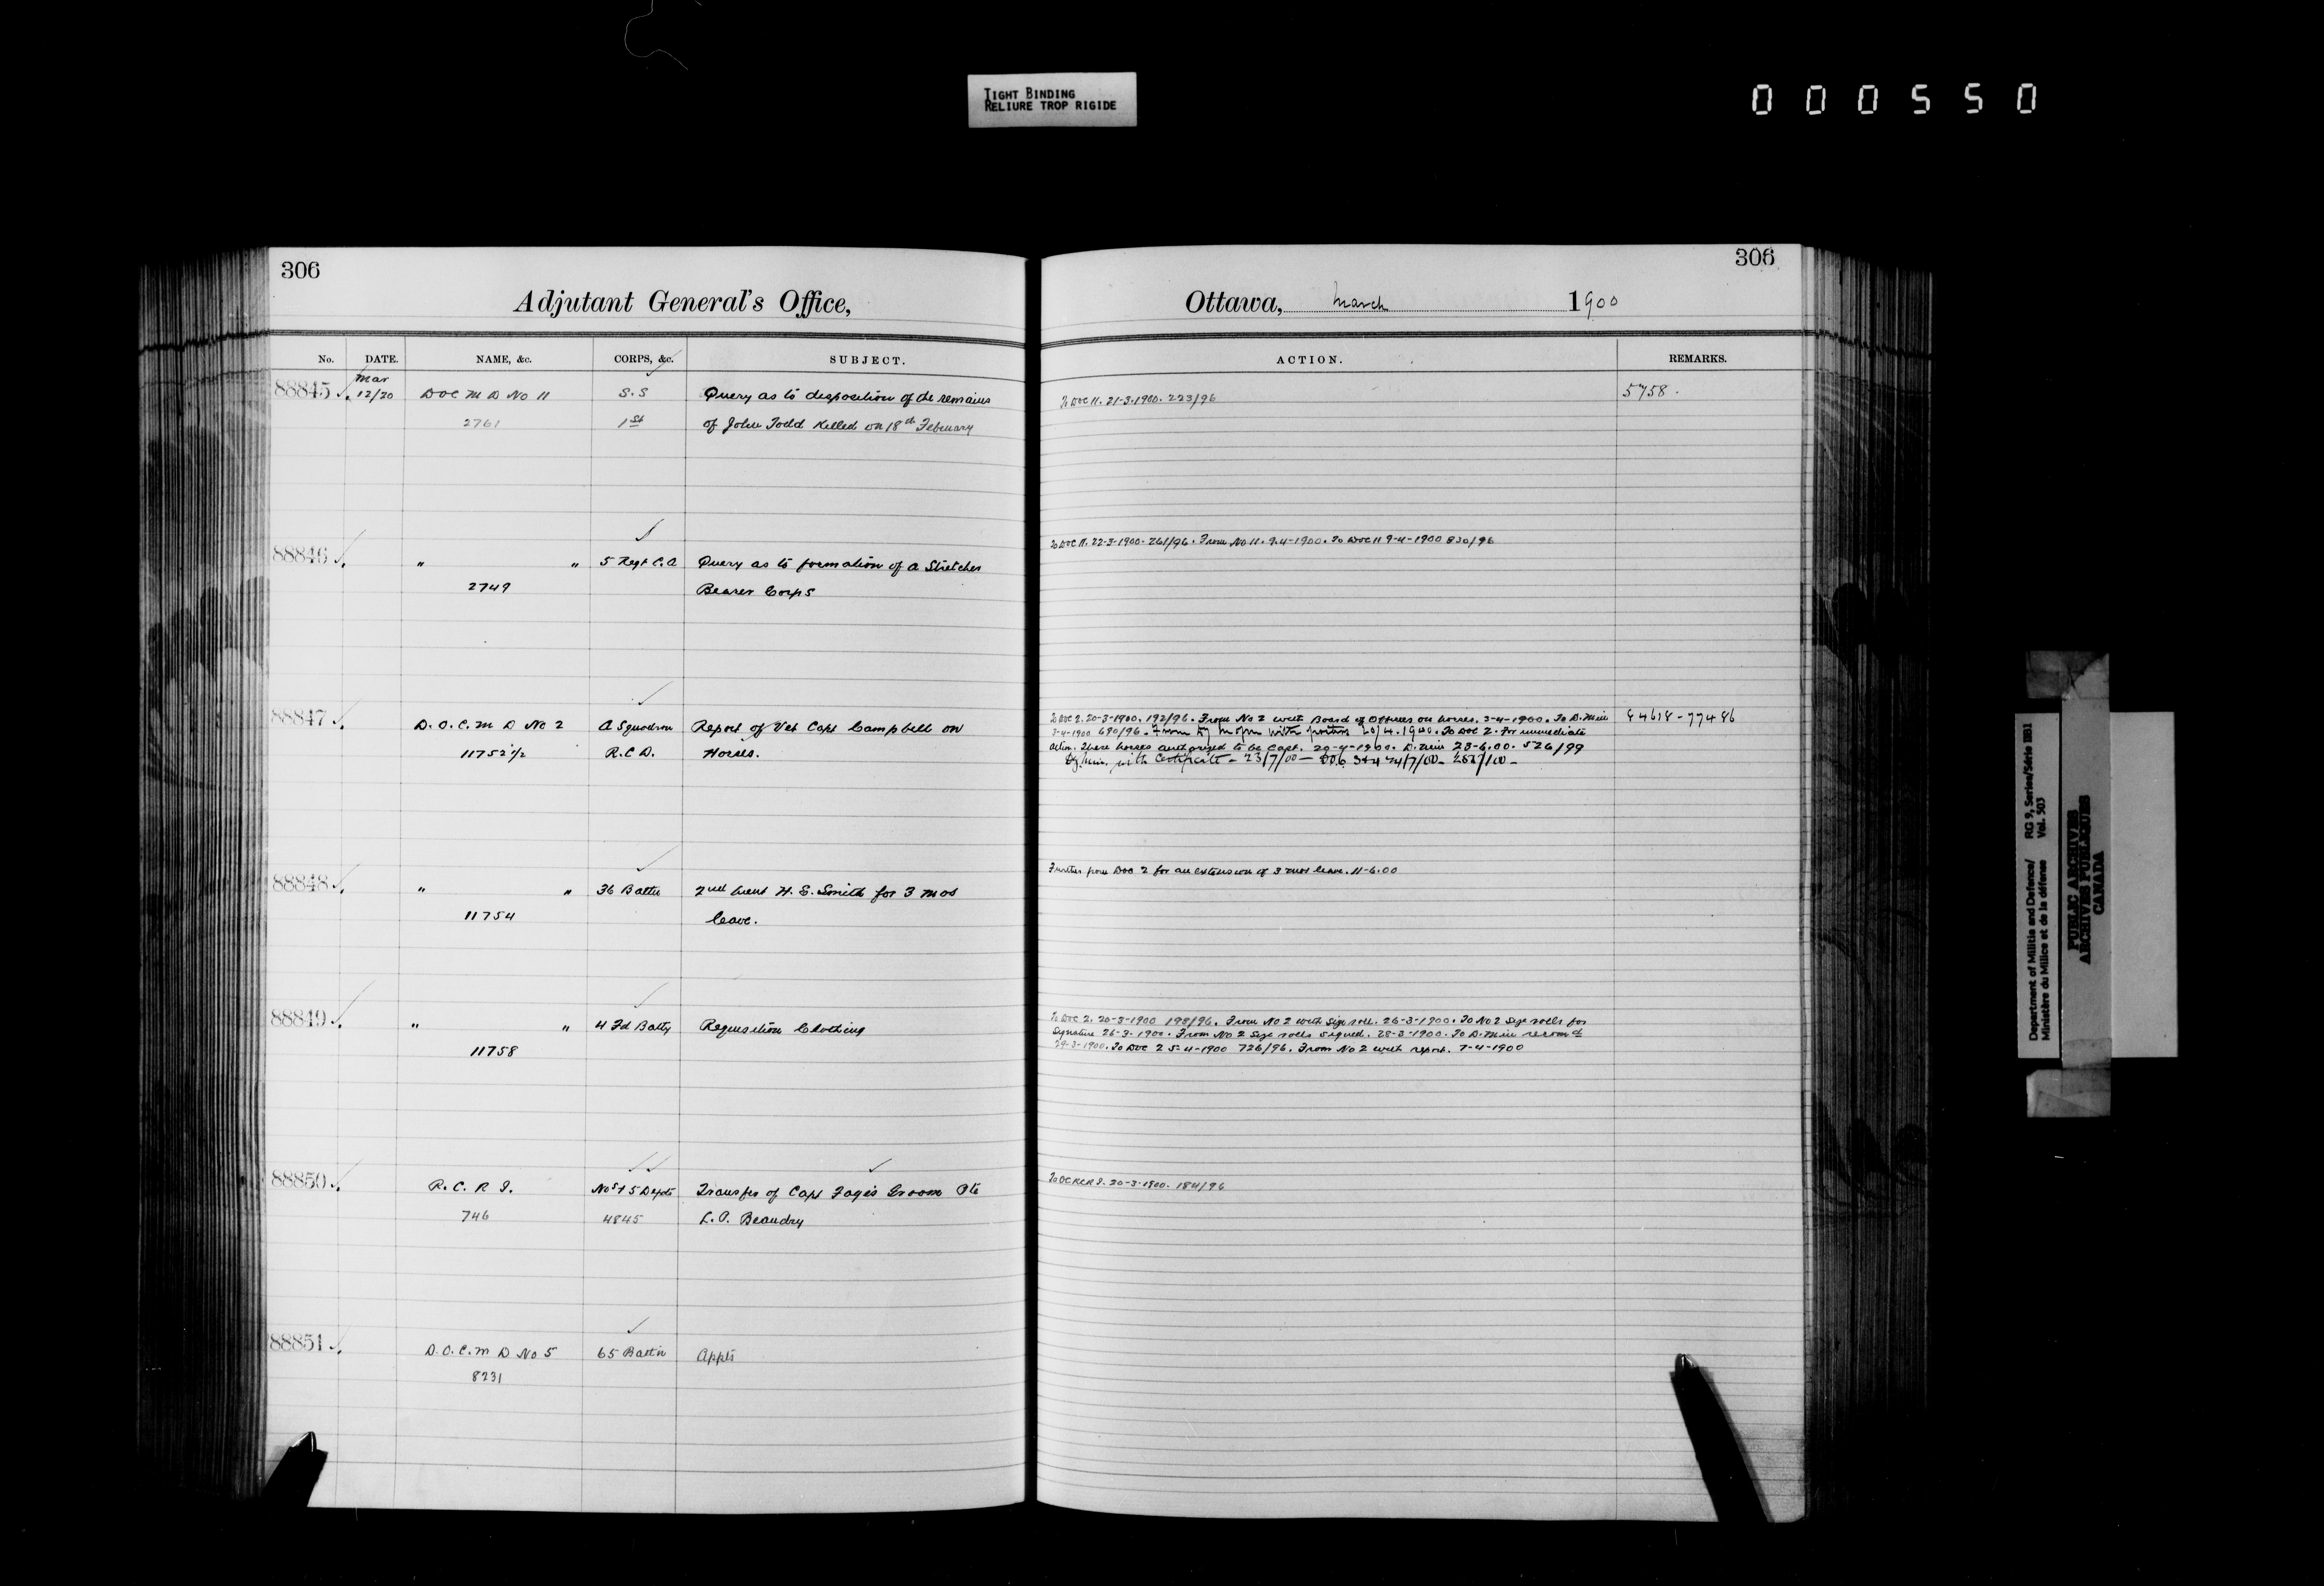 TIGHT BINDING
RELIURE TROP RIGIDE
000550
306
Adjutant General's Office,
No. DATE. NAME, &c. CORPS, &c. SUBJECT.
88845 Mar 12/20 DOC M D No 11 S.S Query as to disposition of the remains
2761 1st of John Todd killed on 18th February
88846 " " 5 Regt C.A Query as to formation of a Stretcher
2749 Bearer Corps
88847 D.O.C. M D No 2 A Squadron Report of Vet Capt Campbell on
11752 1/2 R.C.D. Horses.
88848 " " 36 Battn 2nd Lieut H. S. Smith for 3 mos
11754 leave.
88849 " " 4 Fd Batty Requisition Clothing
11758
88850 R.C.R.I. No 5 Depot Transfer of Capt Fages Groom Pte
746 4845 L.P. Beaudry
88851 D.O.C. M D No 5 65 Battn Appts
8231
306
Ottawa, March 1900
ACTION. REMARKS.
To DOC 11. 21-3-1900. 223/96 5758.
To DOC 11. 22-3-1900. 261/96. From No 11. 9-4-1900. To DOC 11 9-4-1900 830/96
To DOC 2. 20-3-1900. 192/96. From No 2 with Board of Officers on horses. 3-4-1900. To D. Min 84618-77486
3-4-1900 690/96. From with 20/4.1900. To DOC 2. For immediate
action. These horses authorized to be Capt. 20-4-1900. D. Min 23-6.00. 526/99
with Certificate - 23/7/00
Further from DOC 2 for an extension of 3 mos leave. 11-6.00
To DOC 2. 20-3-1900 198/96. From No 2 with Size roll. 26-3-1900. To No 2 Size rolls for
Signature 26-3-1900. From No 2 Size rolls signed. 28-3-1900. To D. Min recomd
29-3-1900. To DOC 2 5-4-1900 726/96. From No 2 with report. 7-4-1900
To OC RCRI. 20-3-1900. 184/96
Department of Militia and Defence/ RG 9, Series/Série IIB1
Ministère du Milice et de la défense Vol. 503
PUBLIC ARCHIVES
ARCHIVES PUBLIQUES
CANADA